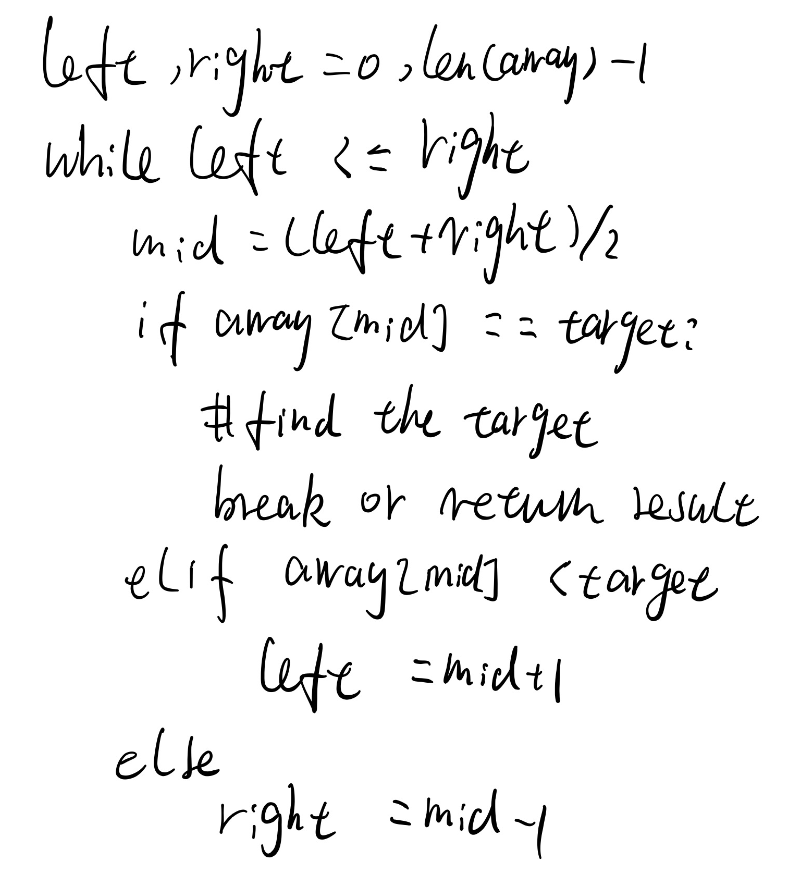 left ,right =0 ,len(array) -1
while left <= right
mid =(left+right)/2
if array [mid] == target:
#find the target
break or return result
elif array[mid] <target
left =mid+1
else
right =mid-1